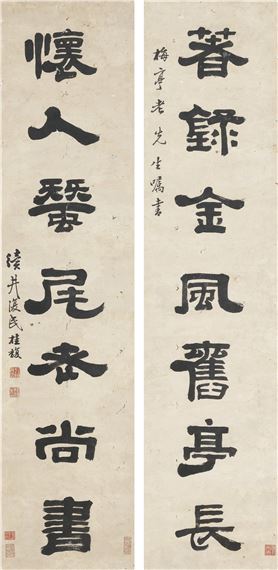 著錄金風舊亭長
梅亭老先生囑書
懷人蠶尾老尚書
瀆井復民桂馥